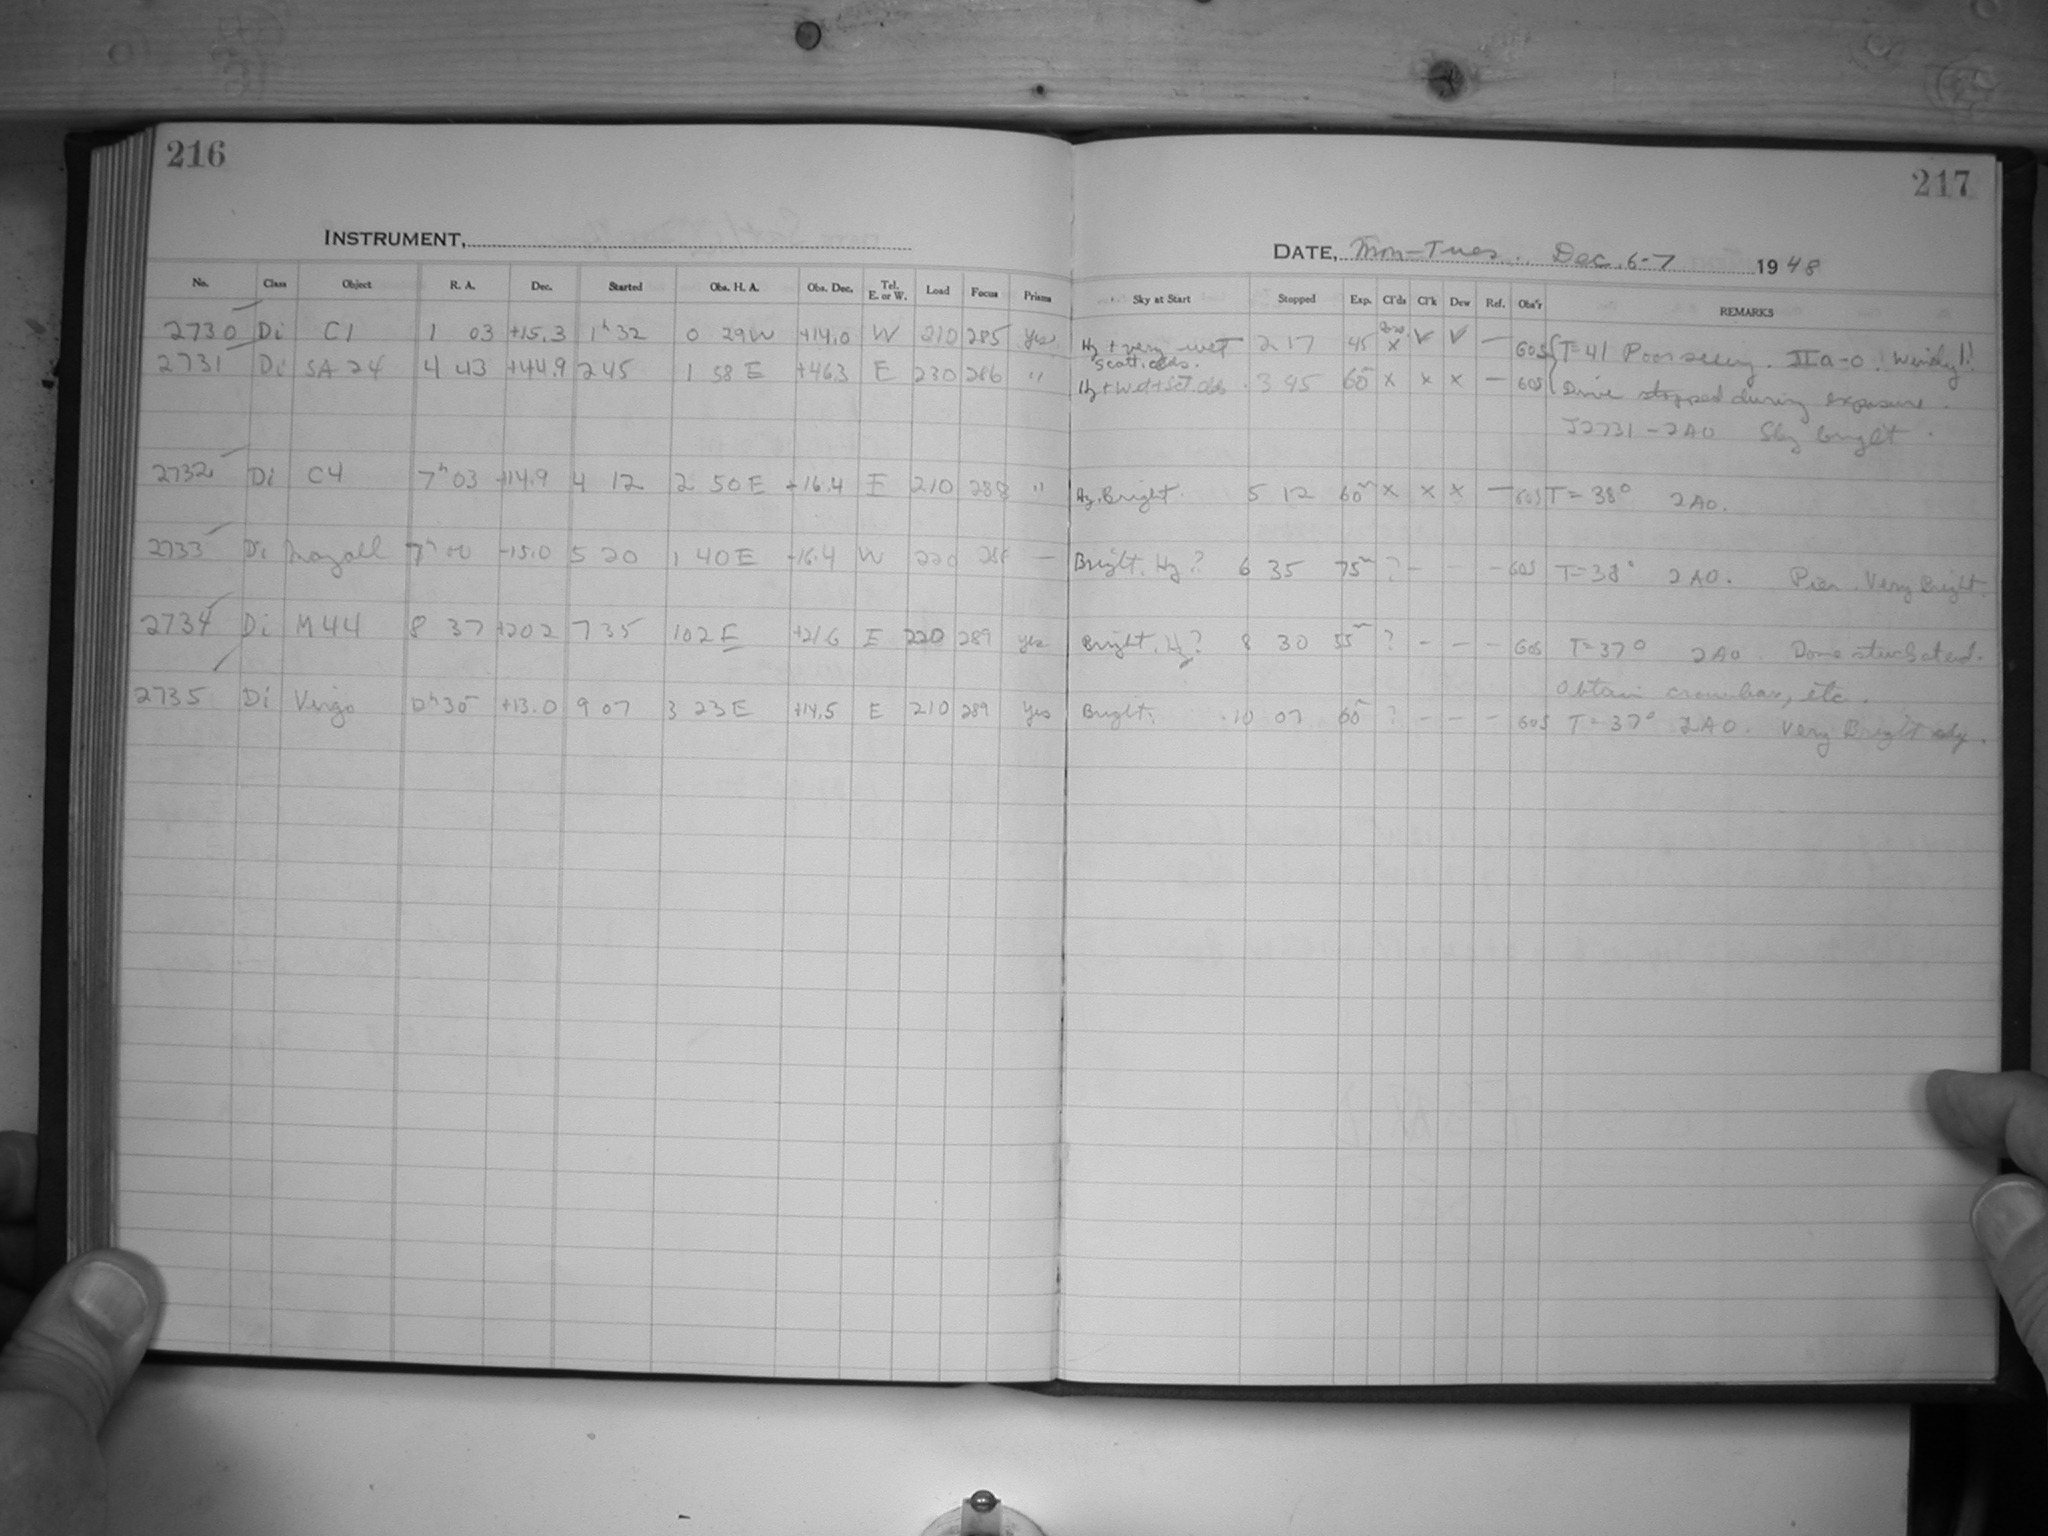 216
217
INSTRUMENT,
DATE, Mon-Tues. Dec. 6-7 1948
No. Class Object R. A. Dec. Started Obs. H. A. Obs. Dec. Tel. E. or W. Load Focus Prisms Sky at Start Stopped Exp. Cl'ds Cl'k Dew Ref. Obs'r REMARKS
2730 Di C1 1 03 +15.3 1h 32 0 29W +14.0 W 210 285 Yes Hz + very wet scatt. clds. 2 17 45 x ✓ ✓ — GOS T=41 Poor seeing. IIa-O! Windy!!
2731 Di SA 24 4 43 +44.9 2 45 1 58 E +46.3 E 230 286 " Hz + Wet + Sct. clds 3 45 60 x x x — GOS Drive stopped during exposure.
J2731 - 2A0 Sky bright.
2732 Di C4 7h 03 +14.9 4 12 2 50 E +16.4 E 210 288 " Hz. Bright. 5 12 60m x x x — GOS T=38° 2A0.
2733 Di 7h 00 -15.0 5 20 1 40 E -16.4 W 220 — Bright, Hz? 6 35 75m ? - - - GOS T=38° 2A0. Pier. Very Bright.
2734 Di M44 8 37 +20.2 7 35 1 02 E +21.6 E 220 289 yes Bright, Hz? 8 30 55m ? - - - GOS T=37° 2A0. Dome stuck
Obtain crowbar, etc.
2735 Di Virgo 12h 30 +13.0 9 07 3 23 E +14.5 E 210 289 Yes Bright. 10 07 60 ? - - - GOS T=37° 2A0. Very Bright sky.